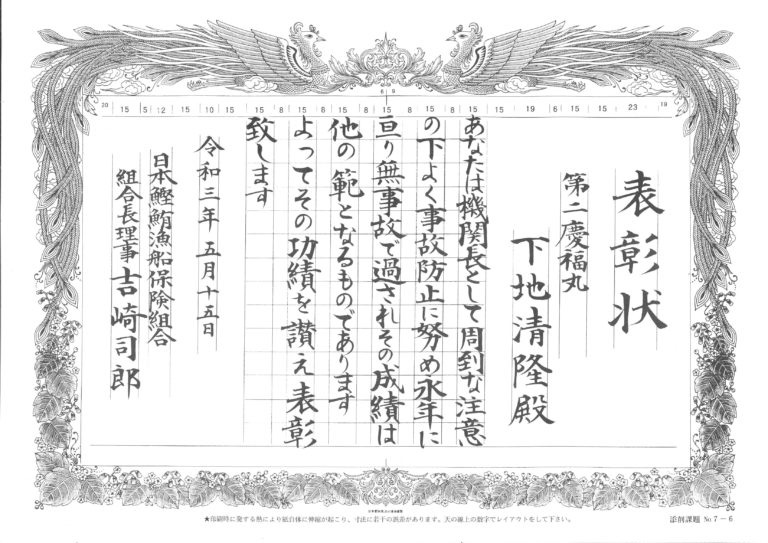 表彰状
第二慶福丸
下地清隆殿
あなたは機関長として周到な注意
の下よく事故防止に努め永年に
亘り無事故で過されその成績は
他の範となるものであります
よってその功績を讃え表彰
致します
令和三年五月十五日
日本鰹鮪漁船保険組合
組合長理事吉崎司郎
20 15 5 12 15 10 15 15 8 15 8 15 8 15 8 15 8 15 15 19 6 15 15 23 19
6 9
★印刷時に発する熱により紙自体に伸縮が起こり、寸法に若干の誤差があります。天の線上の数字でレイアウトをして下さい。
添削課題 No 7－6